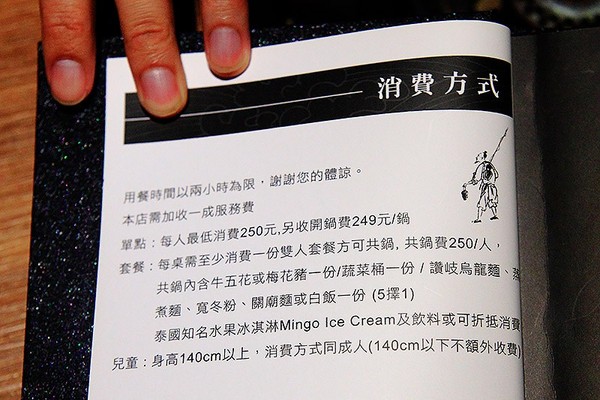 消費方式
用餐時間以兩小時為限，謝謝您的體諒。
本店需加收一成服務費
單點：每人最低消費250元,另收開鍋費249元/鍋
套餐：每桌需至少消費一份雙人套餐方可共鍋, 共鍋費250/人，
共鍋內含牛五花或梅花豬一份/蔬菜桶一份 / 讚岐烏龍麵、蒸
煮麵、寬冬粉、關廟麵或白飯一份 (5擇1)
泰國知名水果冰淇淋Mingo Ice Cream及飲料或可折抵消費
兒童：身高140cm以上，消費方式同成人(140cm以下不額外收費)